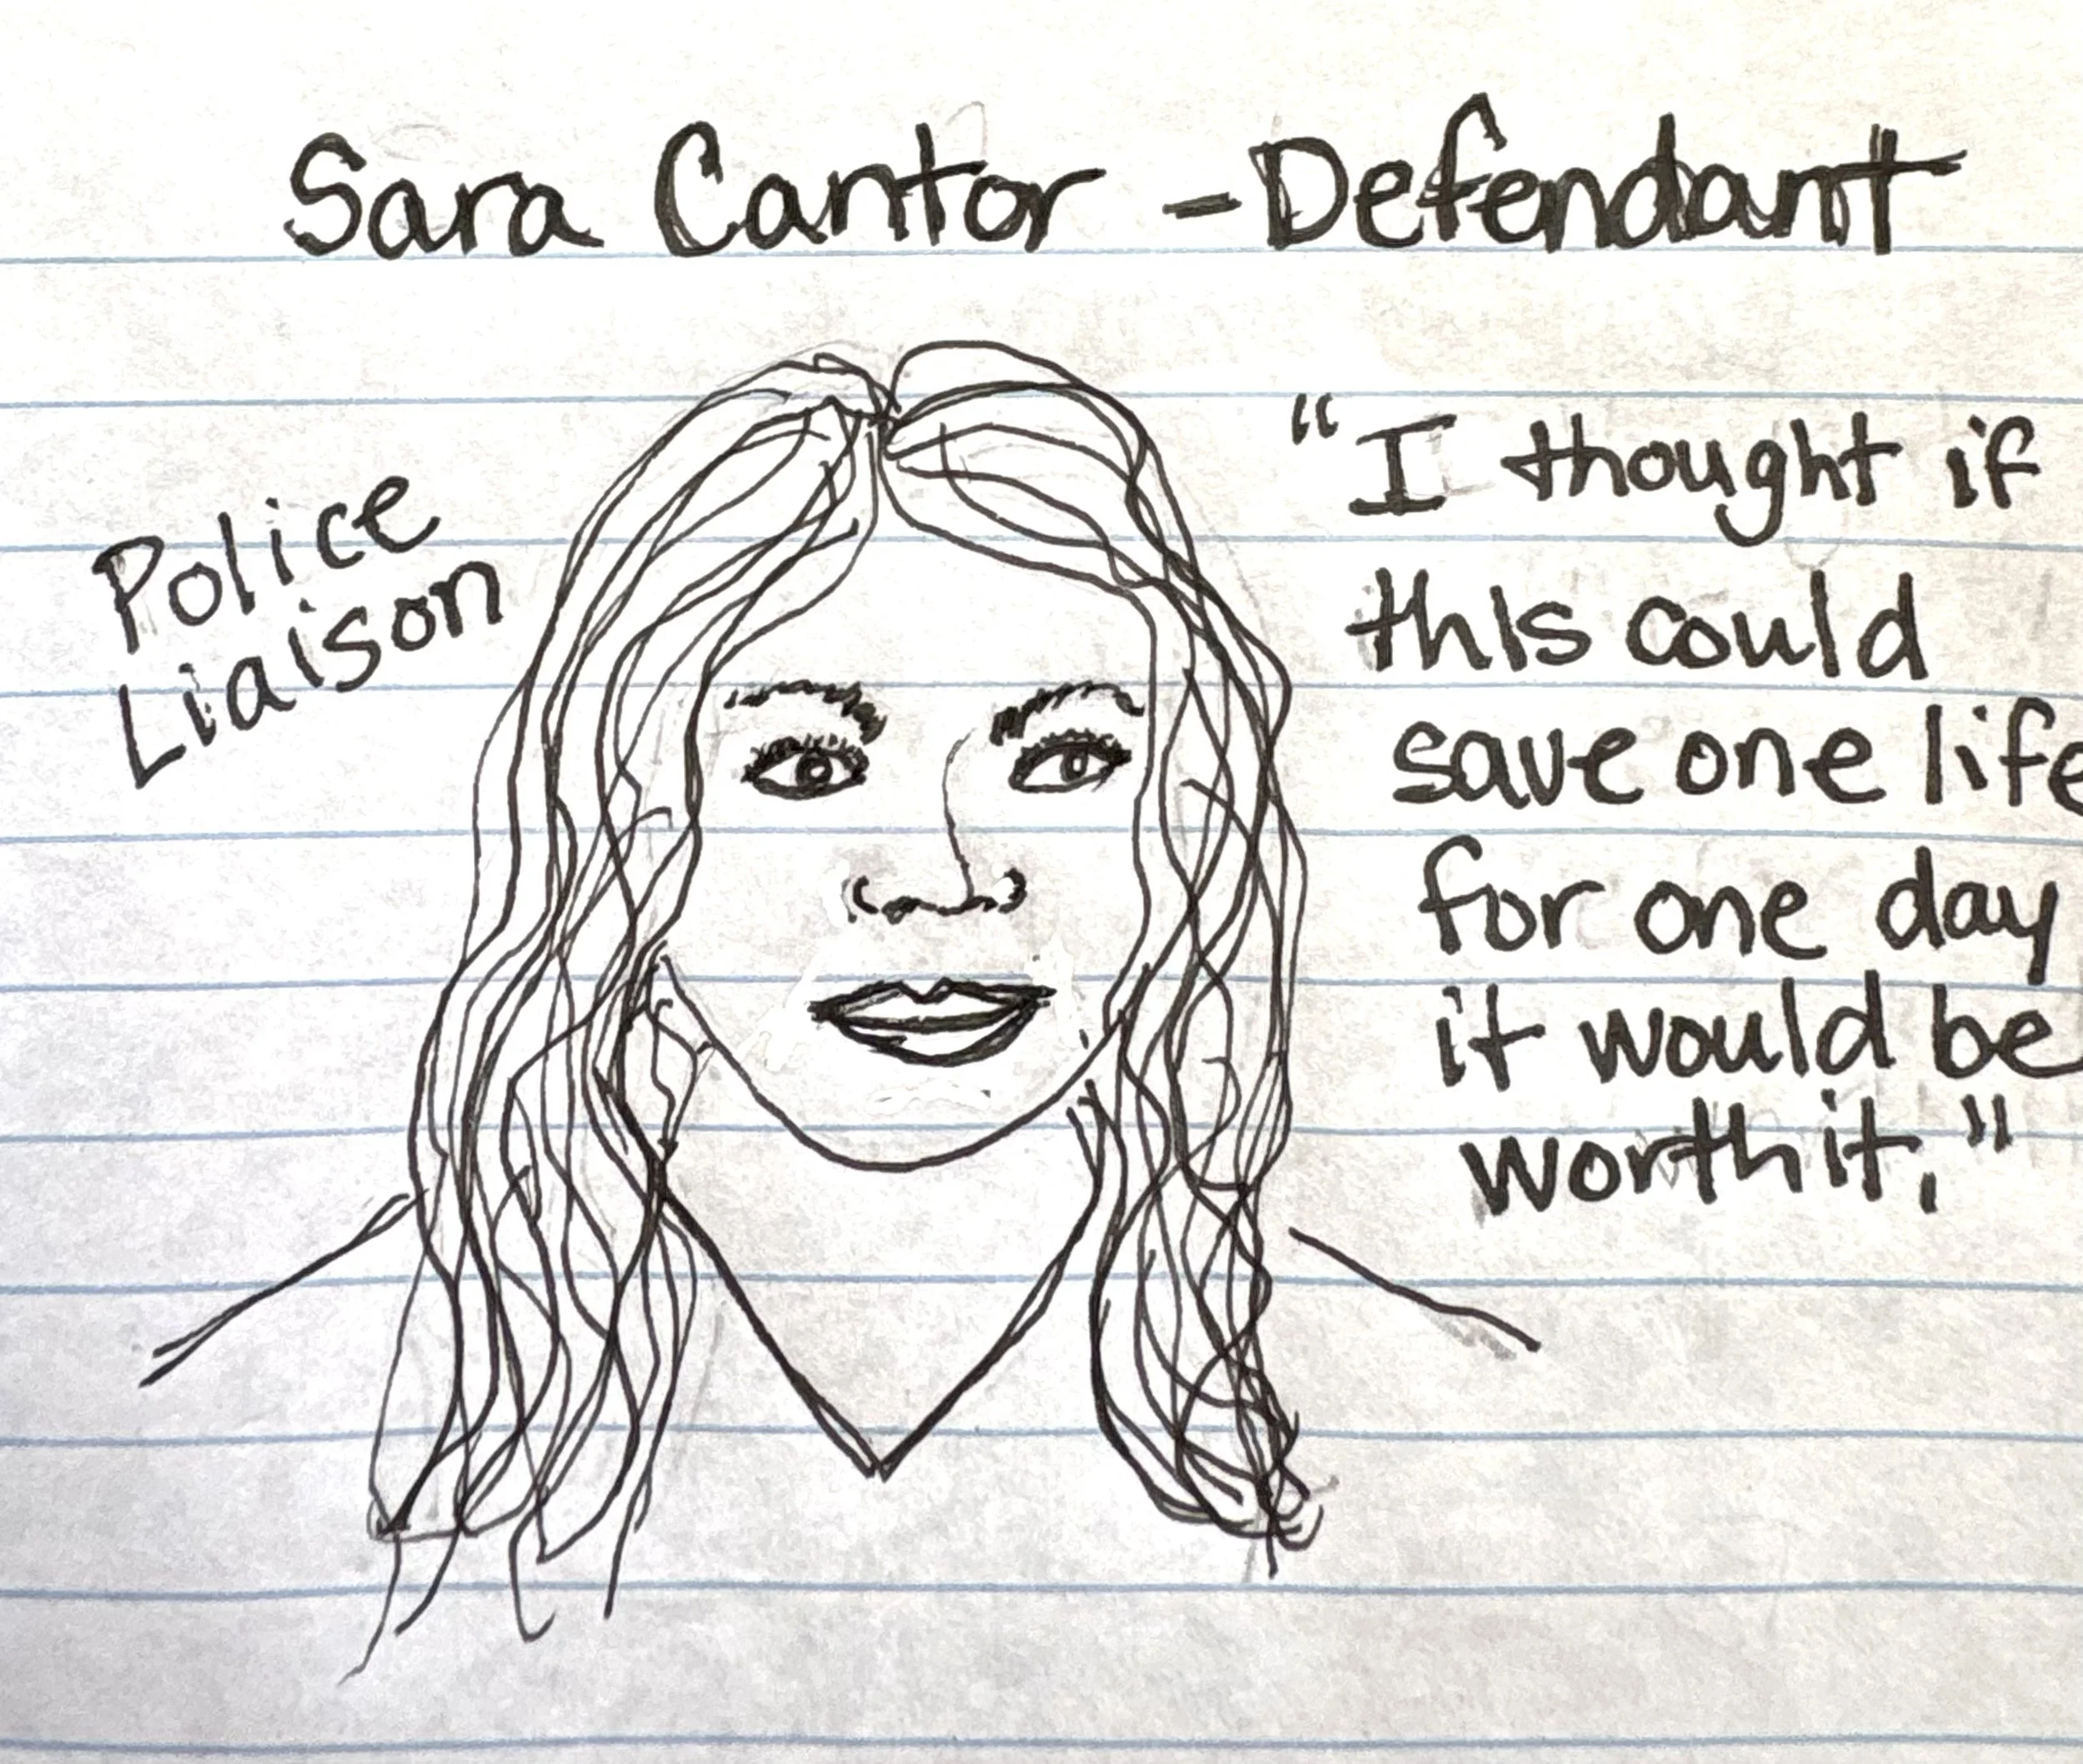 Sara Cantor - Defendant
Police
Liaison
"I thought if
this could
save one life
for one day
it would be
worth it."